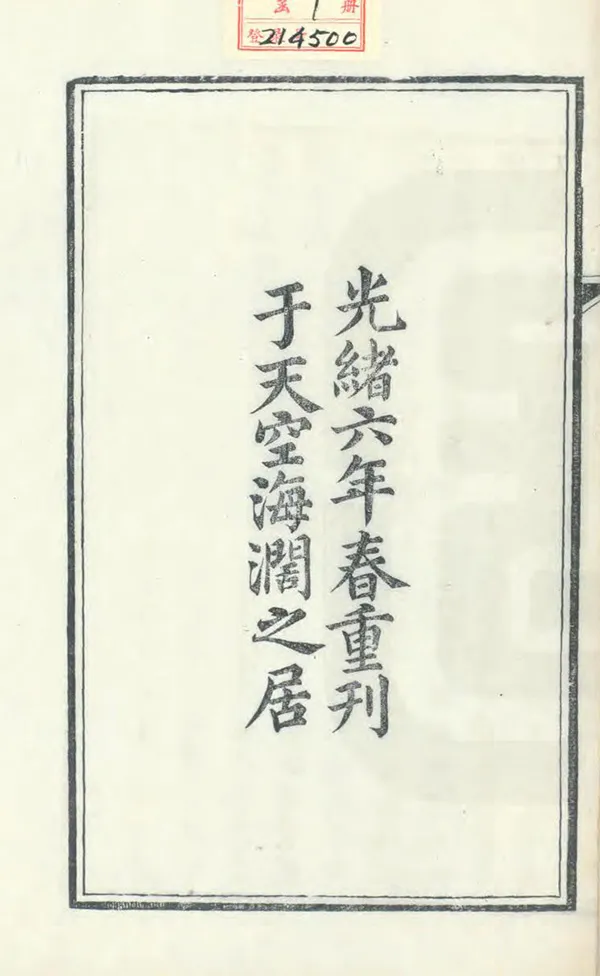 冊
1
登
214500
光緒六年春重刊
于天空海濶之居